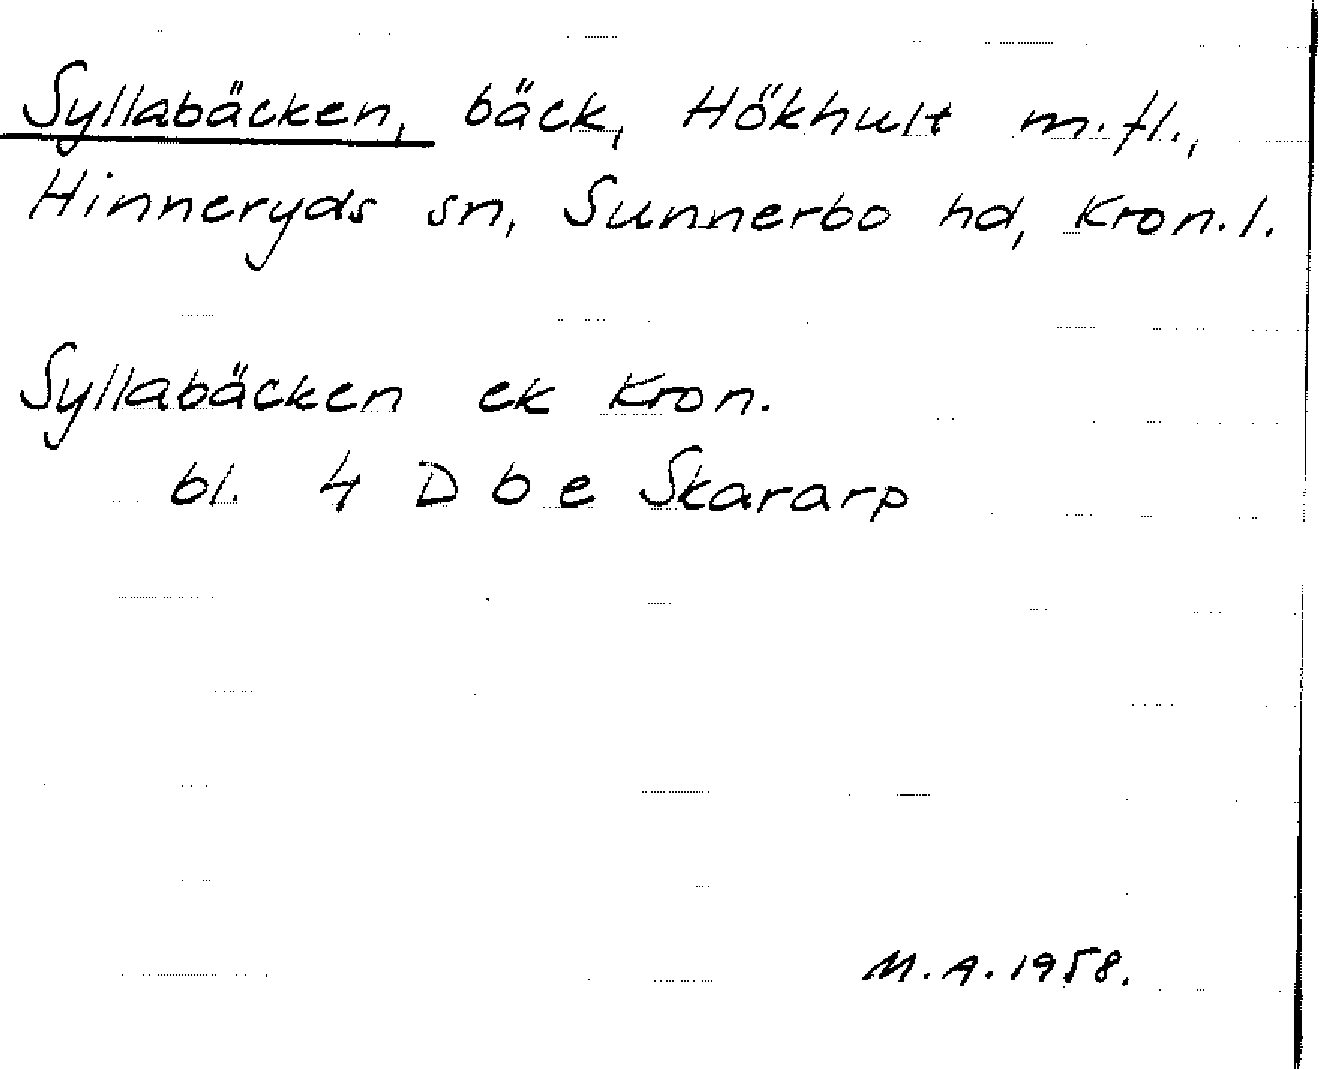 Syllabäcken, bäck, Hökhult m.fl.,
Hinneryds sn, Sunnerbo hd, Kron. l.
Syllabäcken ek Kron.
bl. 4 D b e Skararp
M.A. 1958.